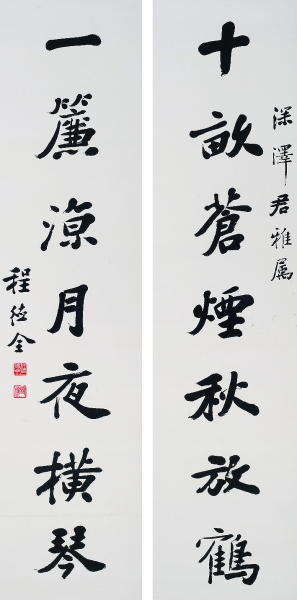 深澤君雅属
十畝蒼煙秋放鶴
一簾涼月夜橫琴
程德全